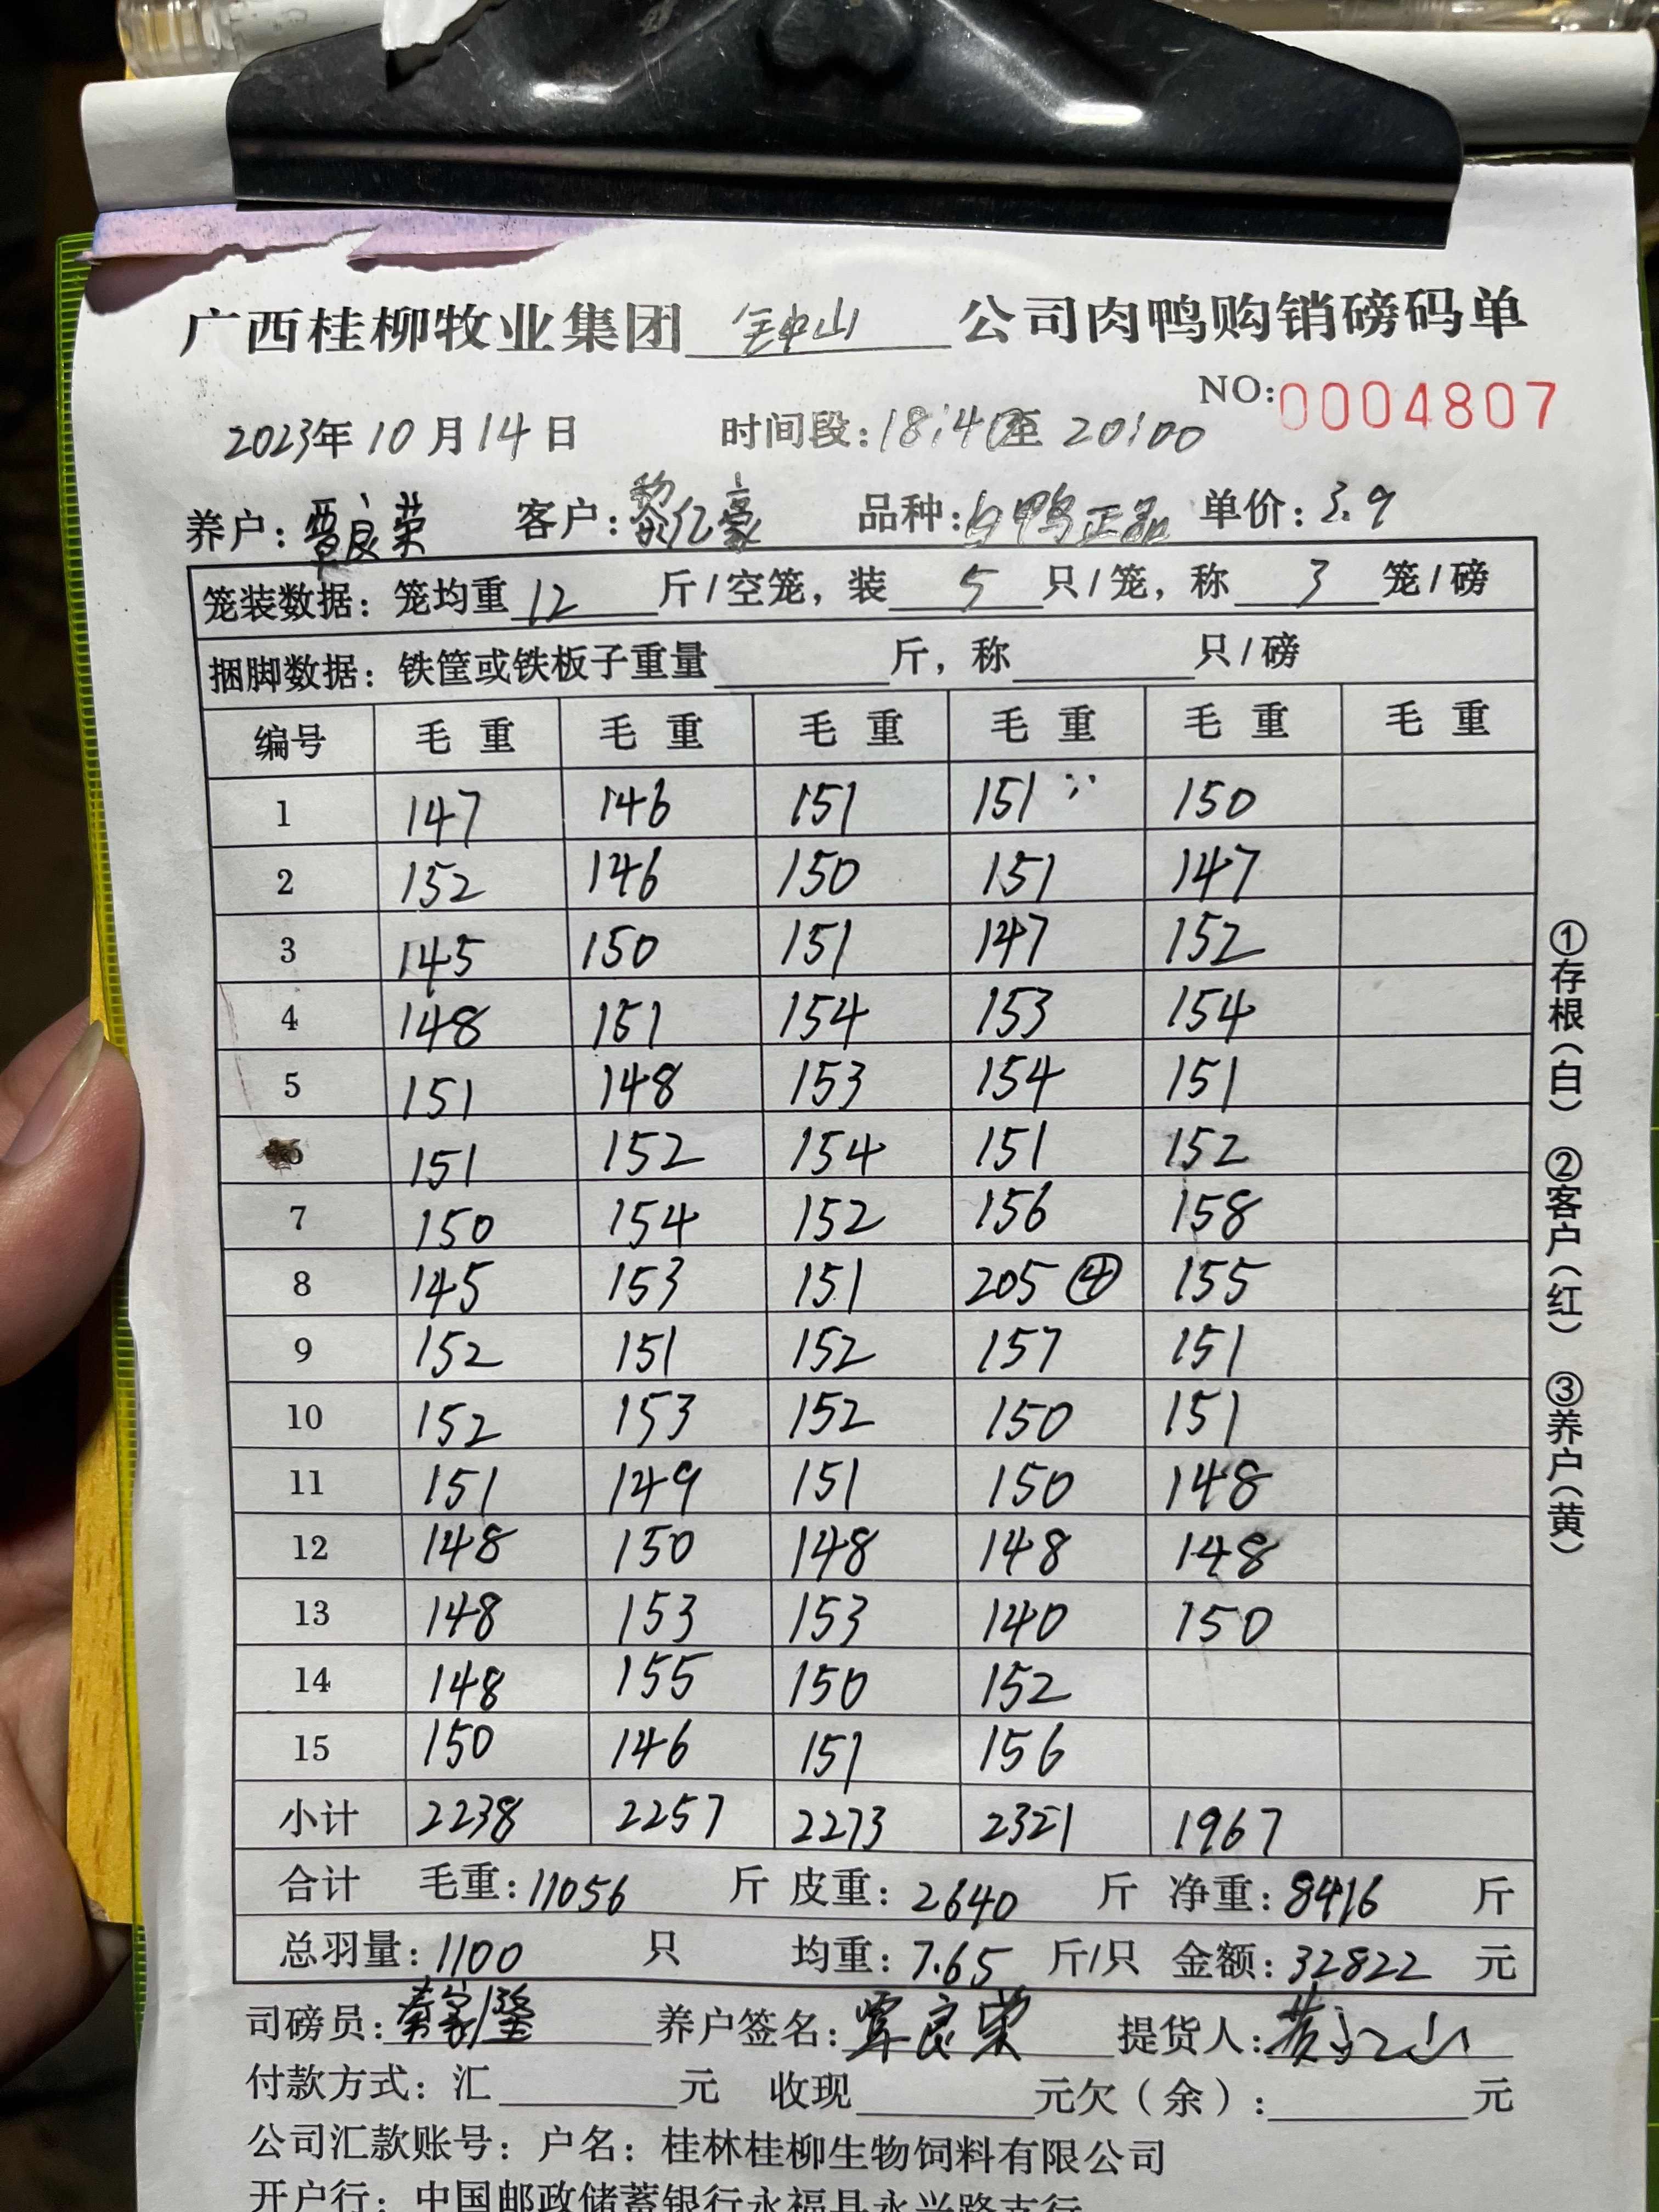 广西桂柳牧业集团 钟山 公司肉鸭购销磅码单
NO:0004807
2023年10月14日 时间段:18:40至20:00
养户:覃良荣 客户:黎亿豪 品种:白鸭正品 单价:3.9
笼装数据:笼均重12斤/空笼,装5只/笼,称3笼/磅
捆脚数据:铁筐或铁板子重量 斤,称 只/磅
编号 毛重 毛重 毛重 毛重 毛重 毛重
1 147 146 151 151 150
2 152 146 150 151 147
3 145 150 151 147 152
4 148 151 154 153 154
5 151 148 153 154 151
6 151 152 154 151 152
7 150 154 152 156 158
8 145 153 151 205④ 155
9 152 151 152 157 151
10 152 153 152 150 151
11 151 149 151 150 148
12 148 150 148 148 148
13 148 153 153 140 150
14 148 155 150 152
15 150 146 151 156
小计 2238 2257 2273 2321 1967
合计 毛重:11056斤 皮重:2640斤 净重:8416斤
总羽量:1100只 均重:7.65斤/只 金额:32822元
司磅员: 养户签名:覃良荣 提货人:
付款方式:汇 元 收现 元欠(余): 元
公司汇款账号:户名:桂林桂柳生物饲料有限公司
开户行:中国邮政储蓄银行永福县永兴路支行
①存根(白) ②客户(红) ③养户(黄)